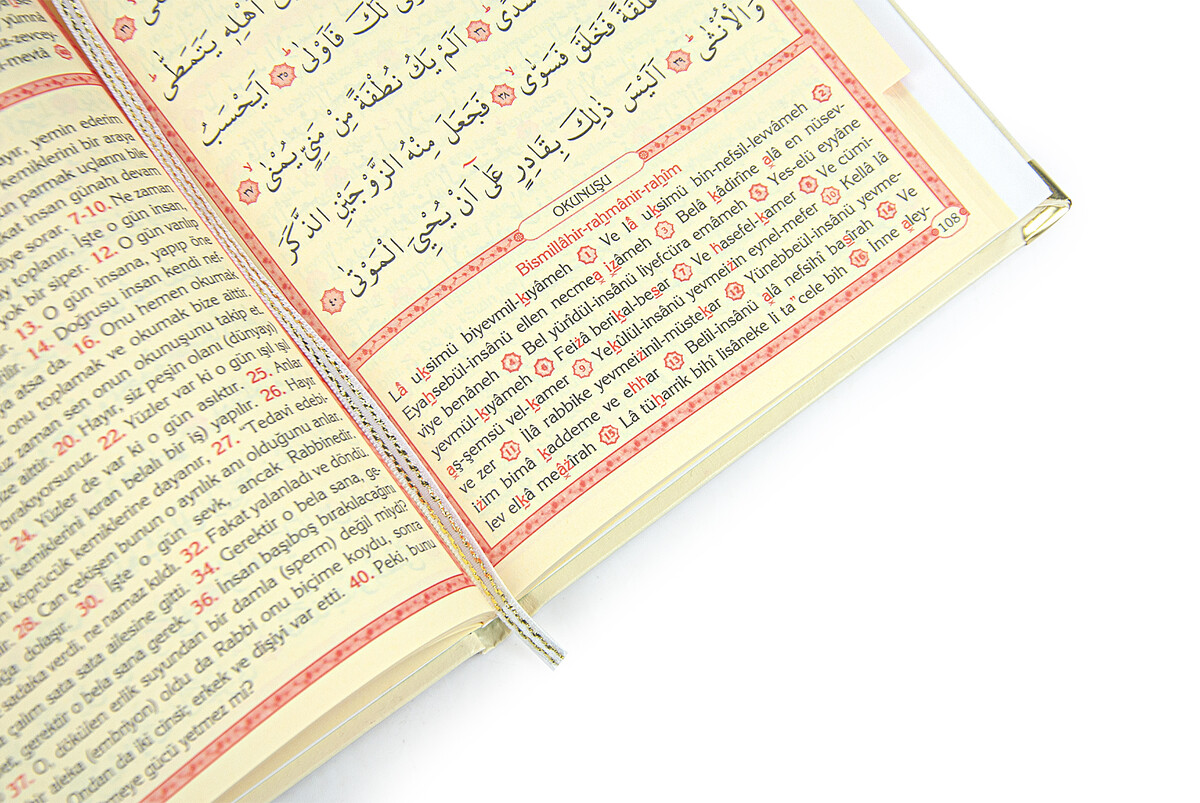 yümna
k-zevcey-
k-mevtâ
ayır, yemin ederim
kemiklerini bir araya
ün parmak uçlarını bile
akat insan günahı devam
diye sorar. 7-10. Ne zaman
toplanır, İşte o gün insan,
yok bir siper. 12. O gün varılıp
13. O gün insana, yapıp öne
14. Doğrusu insan kendi nef-
atsa da. 16. Onu hemen okumak
onu toplamak ve okumak bize aittir.
zaman sen onun okunuşunu takip et.
aittir. 20. Hayır, siz peşin olanı (dünyayı)
bırakıyorsunuz. 22. Yüzler var ki o gün ışıl ışıl
24. Yüzler de var ki o gün asıktır. 25. Anlar
kemiklerini kıran belalı bir iş) yapılır. 26. Hayır
köprücük kemiklerine dayanır, 27. "Tedavi edebi-
28. Can çekişen bunun o ayrılık anı olduğunu anlar.
dolaşır. 30. İşte o gün sevk, ancak Rabbinedir.
sadaka verdi, ne namaz kıldı. 32. Fakat yalanladı ve döndü.
çalım sata sata ailesine gitti. 34. Gerektir o bela sana, ge-
gerektir o bela sana gerek. 36. İnsan başıboş bırakılacağını
37. O, dökülen erlik suyundan bir damla (sperm) değil miydi?
bir aleka (embriyon) oldu da Rabbi onu biçime koydu, sonra
Ondan da iki cinsi; erkek ve dişiyi var etti. 40. Peki, bunu
meye gücü yetmez mi?
اَهْلِهٖ يَتَمَطّٰىۜ
لَكَ فَاَوْلٰىۜ ﴿٣٥﴾ اَيَحْسَبُ
سُدًىۜ ﴿٣٦﴾ اَلَمْ يَكُ نُطْفَةً مِنْ مَنِيٍّ يُمْنٰىۙ ﴿٣٧﴾
فَخَلَقَ فَسَوّٰىۙ ﴿٣٨﴾ فَجَعَلَ مِنْهُ الزَّوْجَيْنِ الذَّكَرَ
وَالْاُنْثٰىۜ ﴿٣٩﴾ اَلَيْسَ ذٰلِكَ بِقَادِرٍ عَلٰٓى اَنْ يُحْيِيَ الْمَوْتٰى ﴿٤٠﴾
OKUNUŞU
Bismillâhir-rahmânir-rahîm
Lâ uksimü biyevmil-kıyâmeh 1 Ve lâ uksimü bin-nefsil-levvâmeh 2
Eyahsebül-insânü ellen necmea izâmeh 3 Belâ kâdirîne alâ en nüsev-
viye benâneh 4 Bel yürîdül-insânü liyefcüra emâmeh 5 Yes-elü eyyâne
yevmül-kıyâmeh 6 Feizâ berikal-besar 7 Ve hasefel-kamer 8 Ve cümi-
aş-şemsü vel-kamer 9 Yekûlül-insânü yevmeizin eynel-mefer 10 Kellâ lâ
ve zer 11 İlâ rabbike yevmeizinil-müstekar 12 Yünebbeül-insânü yevme-
izim bimâ kaddeme ve ehhar 13 Belil-insânü alâ nefsihî basîrah 14 Ve
lev elkâ meâzîrah 15 Lâ tüharrik bihî lisâneke li ta"cele bih 16 İnne aley-
108